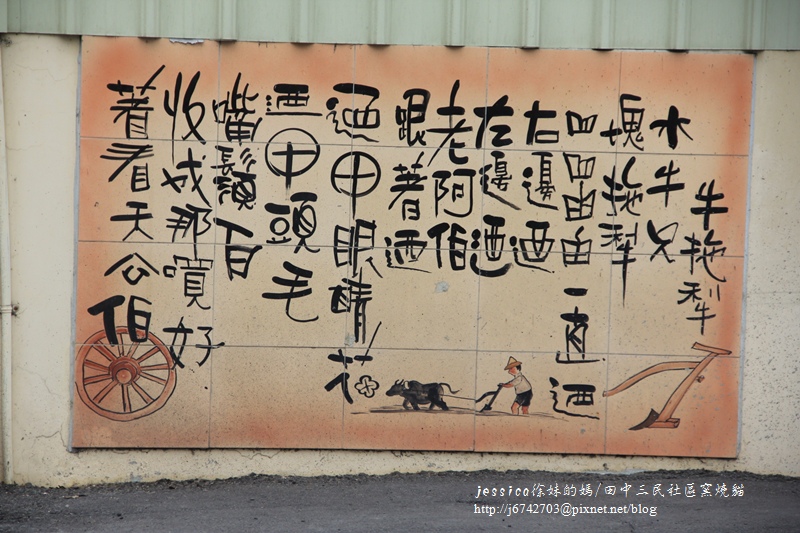 牛拖犁
水牛兄
塊拖犁
凹凹 一直迺
右邊迺
左邊迺
老阿伯
跟著迺
迺甲眼睛花
迺甲頭毛
嘴鬚白
收成那 好
著看天公伯
jessica徐妹的媽/田中三民社區窯燒貓
http://j6742703@pixnet.net/blog